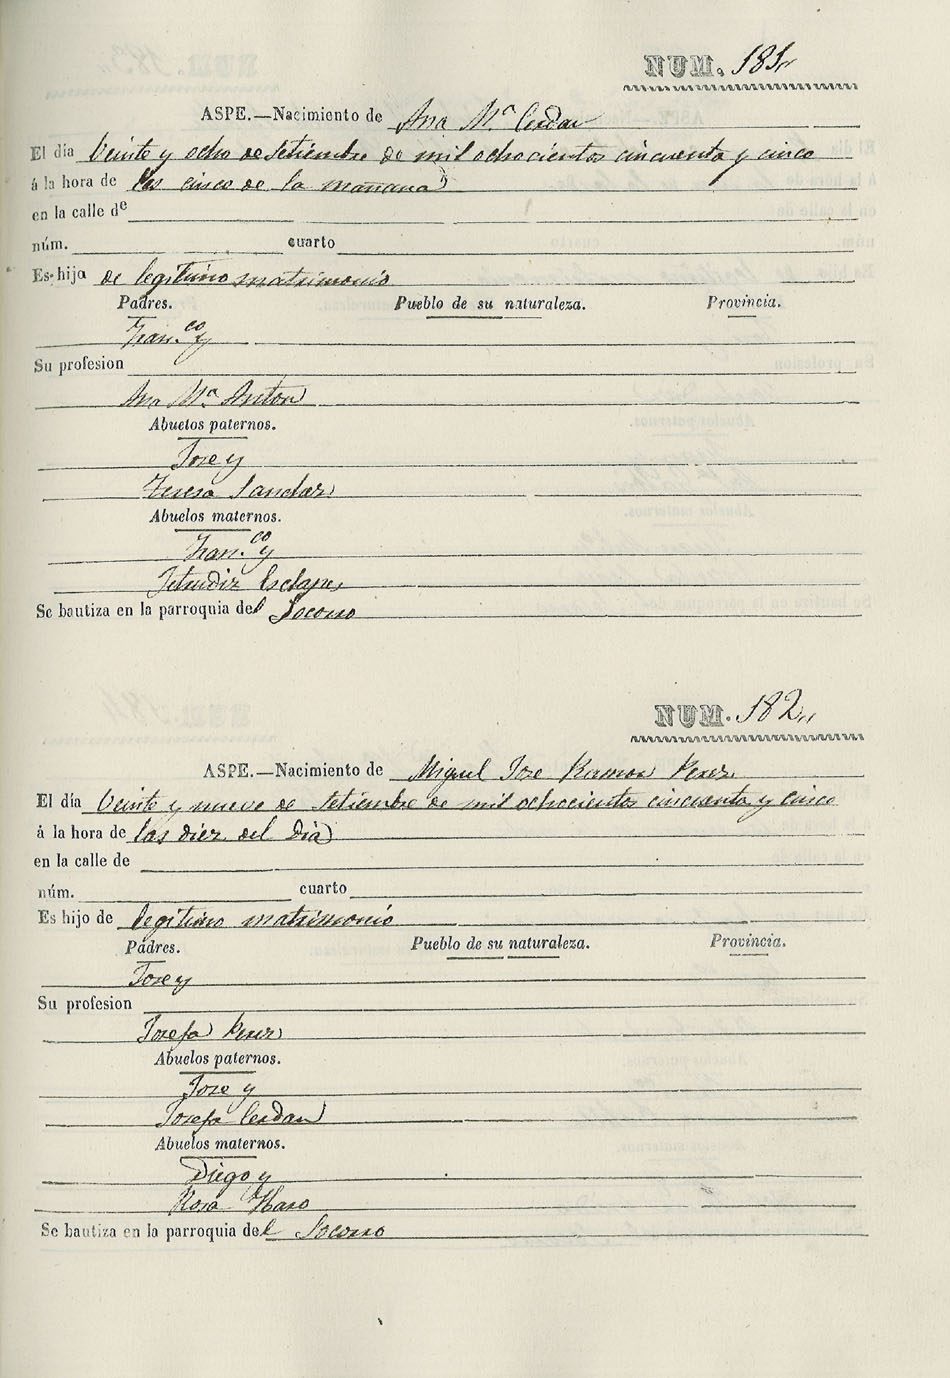 NUM. 181
ASPE.—Nacimiento de Ana M.ª Cerdan
El día Veinte y ocho de Setiembre de mil ochocientos cincuenta y cinco
á la hora de las cinco de la mañana
en la calle de
núm. cuarto
Es hija de legitimo matrimonio
Padres. Pueblo de su naturaleza. Provincia.
Fran.co y
Su profesion
Ana M.ª Anton
Abuelos paternos.
Jose y
Teresa
Abuelos maternos.
Fran.co y
Se bautiza en la parroquia del Socorro
NUM. 182
ASPE.—Nacimiento de Miguel Jose Ramon Perez
El día Veinte y nueve de Setiembre de mil ochocientos cincuenta y cinco
á la hora de las diez del dia
en la calle de
núm. cuarto
Es hijo de legitimo matrimonio
Padres. Pueblo de su naturaleza. Provincia.
Jose y
Su profesion
Josefa Perez
Abuelos paternos.
Jose y
Josefa Cerdan
Abuelos maternos.
Diego y
Rosa Haro
Se bautiza en la parroquia del Socorro